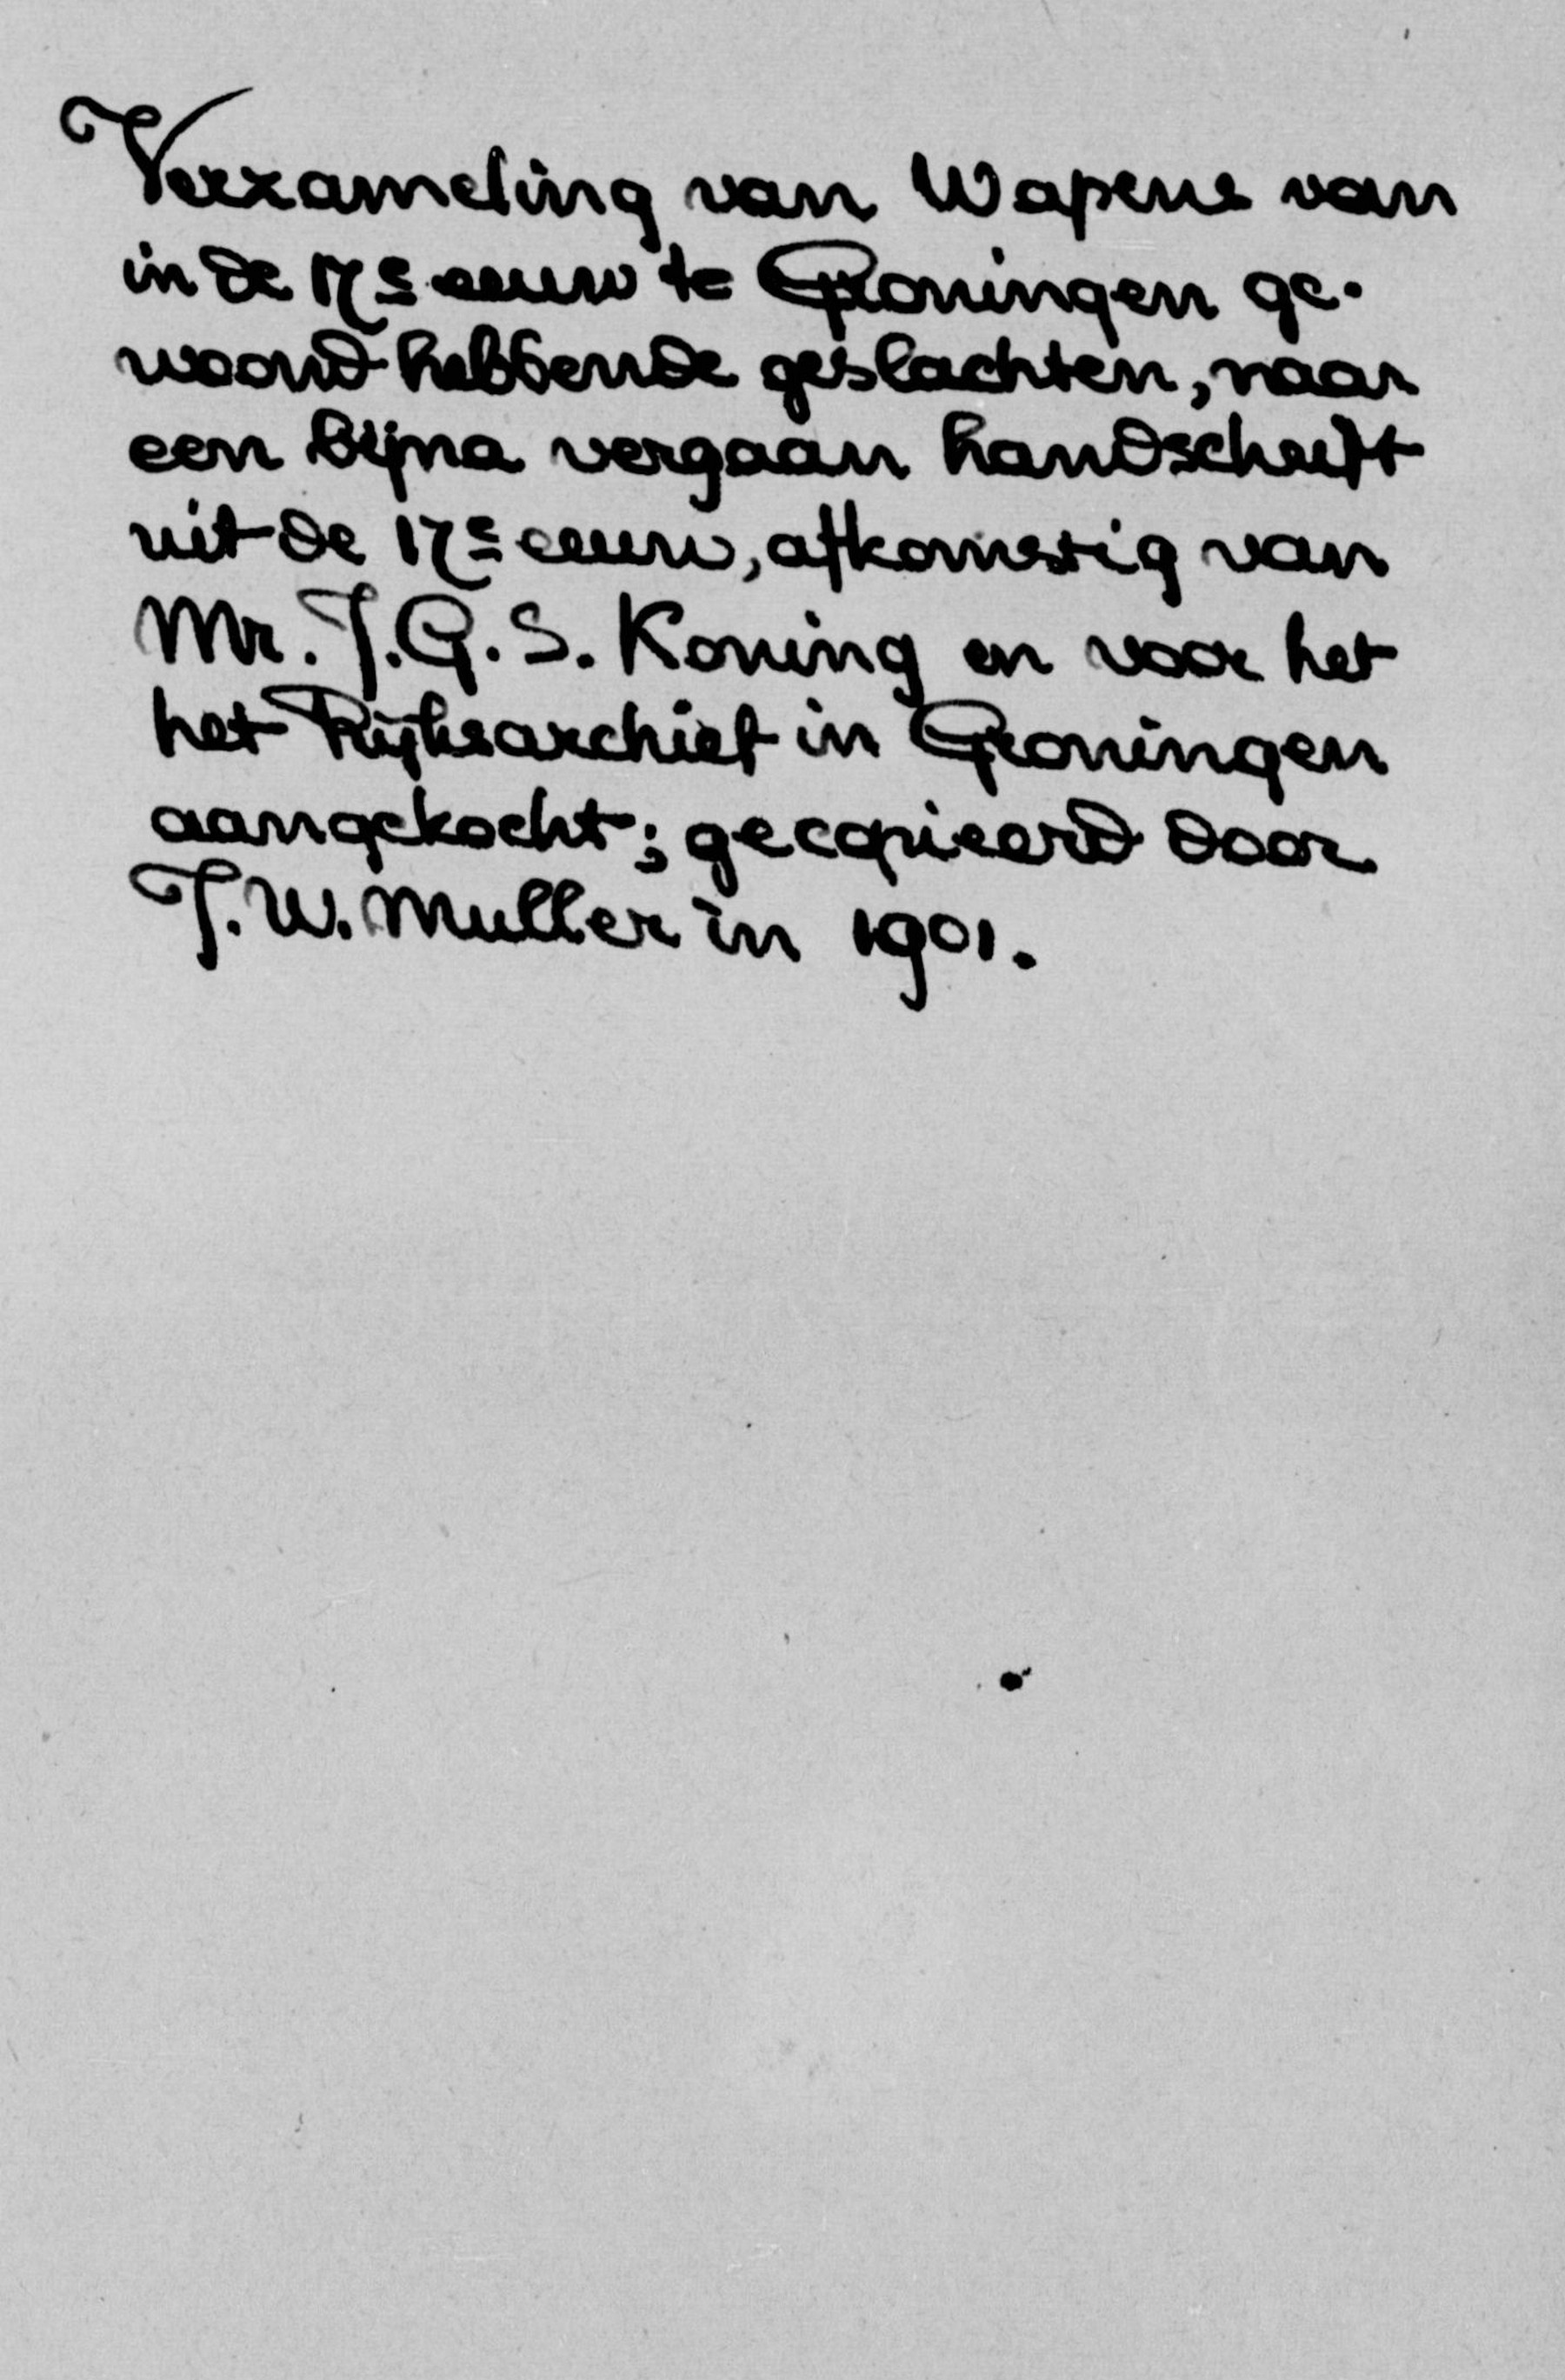 Verzameling van Wapens van
in de 17e eeuw te Groningen ge-
woond hebbende geslachten, naar
een bijna vergaan handschrift
uit de 17e eeuw, afkomstig van
Mr. J.G.S. Koning en voor het
het Rijksarchief in Groningen
aangekocht; gecopieerd door
J.W. Muller in 1901.